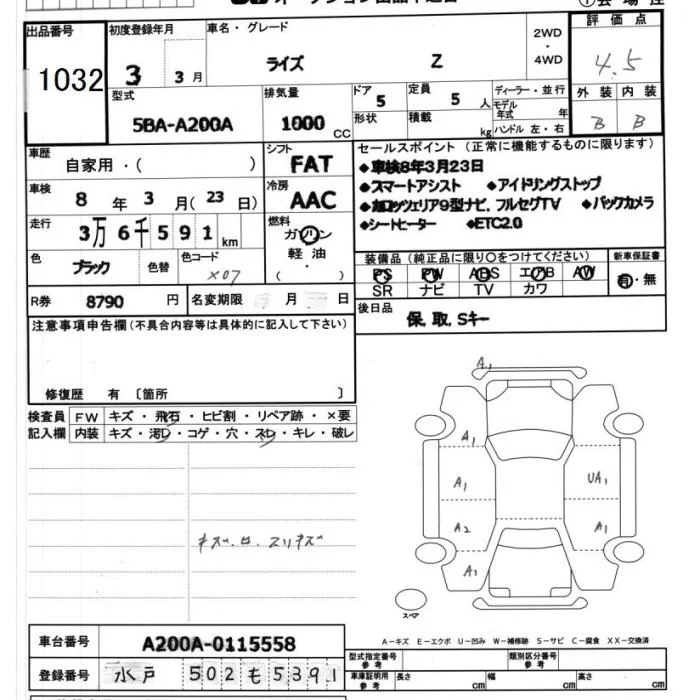 オークション出品申込書
出品番号 1032
初度登録年月 3 3月
車名・グレード ライズ Z
2WD・4WD
評価点 4.5
外装 B 内装 B
型式 5BA-A200A
排気量 1000 CC
ドア 5 形状
定員 5 人 積載 kg
ディーラー・並行
モデル年式 年
ハンドル 左・右
車歴 自家用・( )
シフト FAT
冷房 AAC
車検 8年 3月(23日)
走行 3万6千591km
燃料 ガソリン 軽油・( )
色 ブラック 色替
色コード X07
R券 8790 円 名変期限 月 日
セールスポイント (正常に機能するものに限ります)
◆車検8年3月23日
◆スマートアシスト ◆アイドリングストップ
◆カロッツェリア9型ナビ、フルセグTV ◆バックカメラ
◆シートヒーター ◆ETC2.0
装備品(純正品に限り○をつけてください) 新車保証書
PS PW ABS エアB AW 有・無
SR ナビ TV カワ
後日品 保,取,Sキー
注意事項申告欄(不具合内容等は具体的に記入して下さい)
修復歴 有 〔箇所 〕
検査員記入欄
FW キズ・飛石・ヒビ割・リペア跡・×要
内装 キズ・汚レ・コゲ・穴・スレ・キレ・破レ
キズ・スリキズ
A1
A1
A1 UA1
A2 A1
A1
スペア
A-キズ E-エクボ U-凹み W-補修跡 S-サビ C-腐食 XX-交換済
車台番号 A200A-0115558
登録番号 水戸 502 も 5391
型式指定番号 参考 類別区分番号 参考
車庫証明用 参考 長さ cm 幅 cm 高さ cm